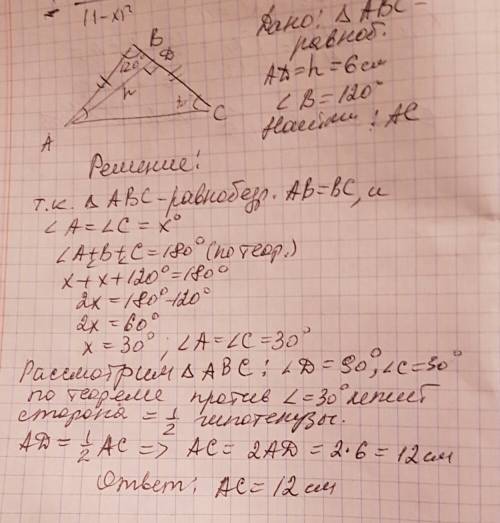 (1-x)²
B
D
120°
h
30°
A
C
Дано: △ABC-
равноб.
AD=h=6см
∠B=120°
Найти: AC
Решение:
т.к. △ABC-равнобедр. AB=BC, и
∠A=∠C=x°
∠A+B+C=180° (по теор.)
x+x+120°=180°
2x=180°-120°
2x=60°
x=30°; ∠A=∠C=30°
Рассмотрим △ABC: ∠D=90°, ∠C=30°
по теореме против ∠=30° лежит
сторона = 1/2 гипотенузы.
AD=1/2 AC => AC=2AD=2·6=12см
Ответ: AC=12см